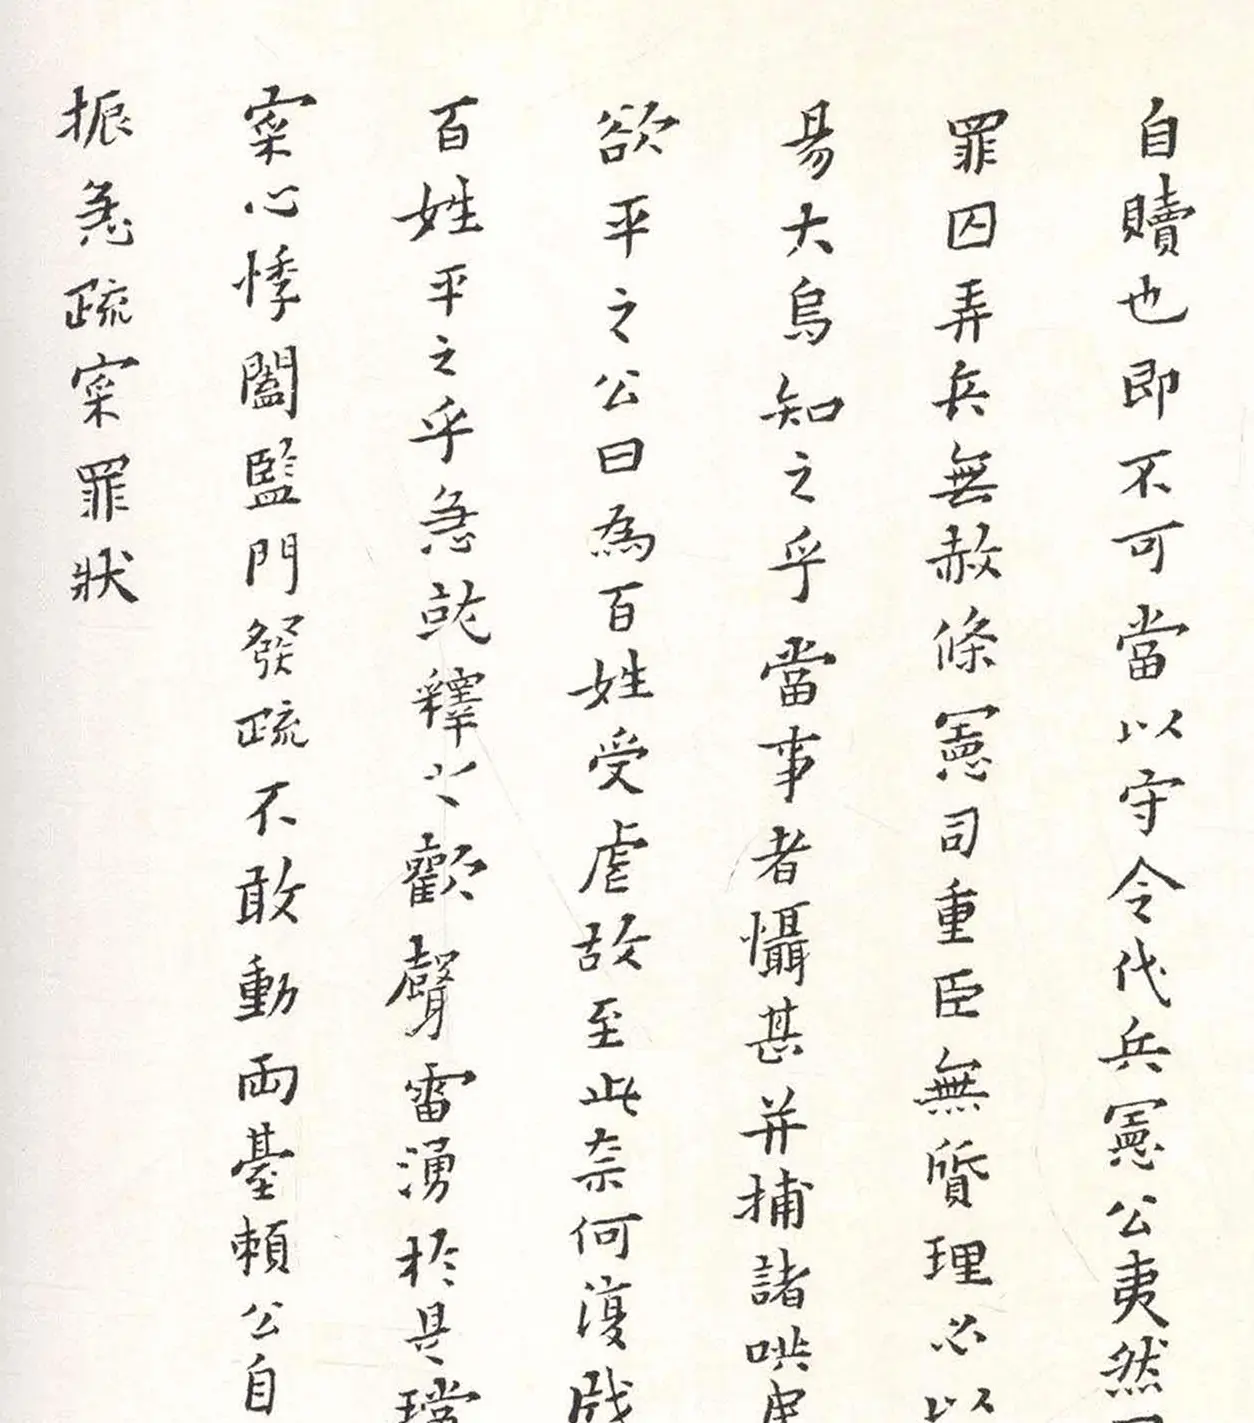 自贖也即不可當以守令代兵憲公夷然
罪囚弄兵無赦條憲司重臣無質理必以
昜大烏知之乎當事者懾甚并捕諸哄
欲平之公曰為百姓受虐故至此柰何復
百姓平之乎急就釋之歡聲雷湧於是璫
寀心悸闔監門發疏不敢動兩臺賴公自
振急疏寀罪狀